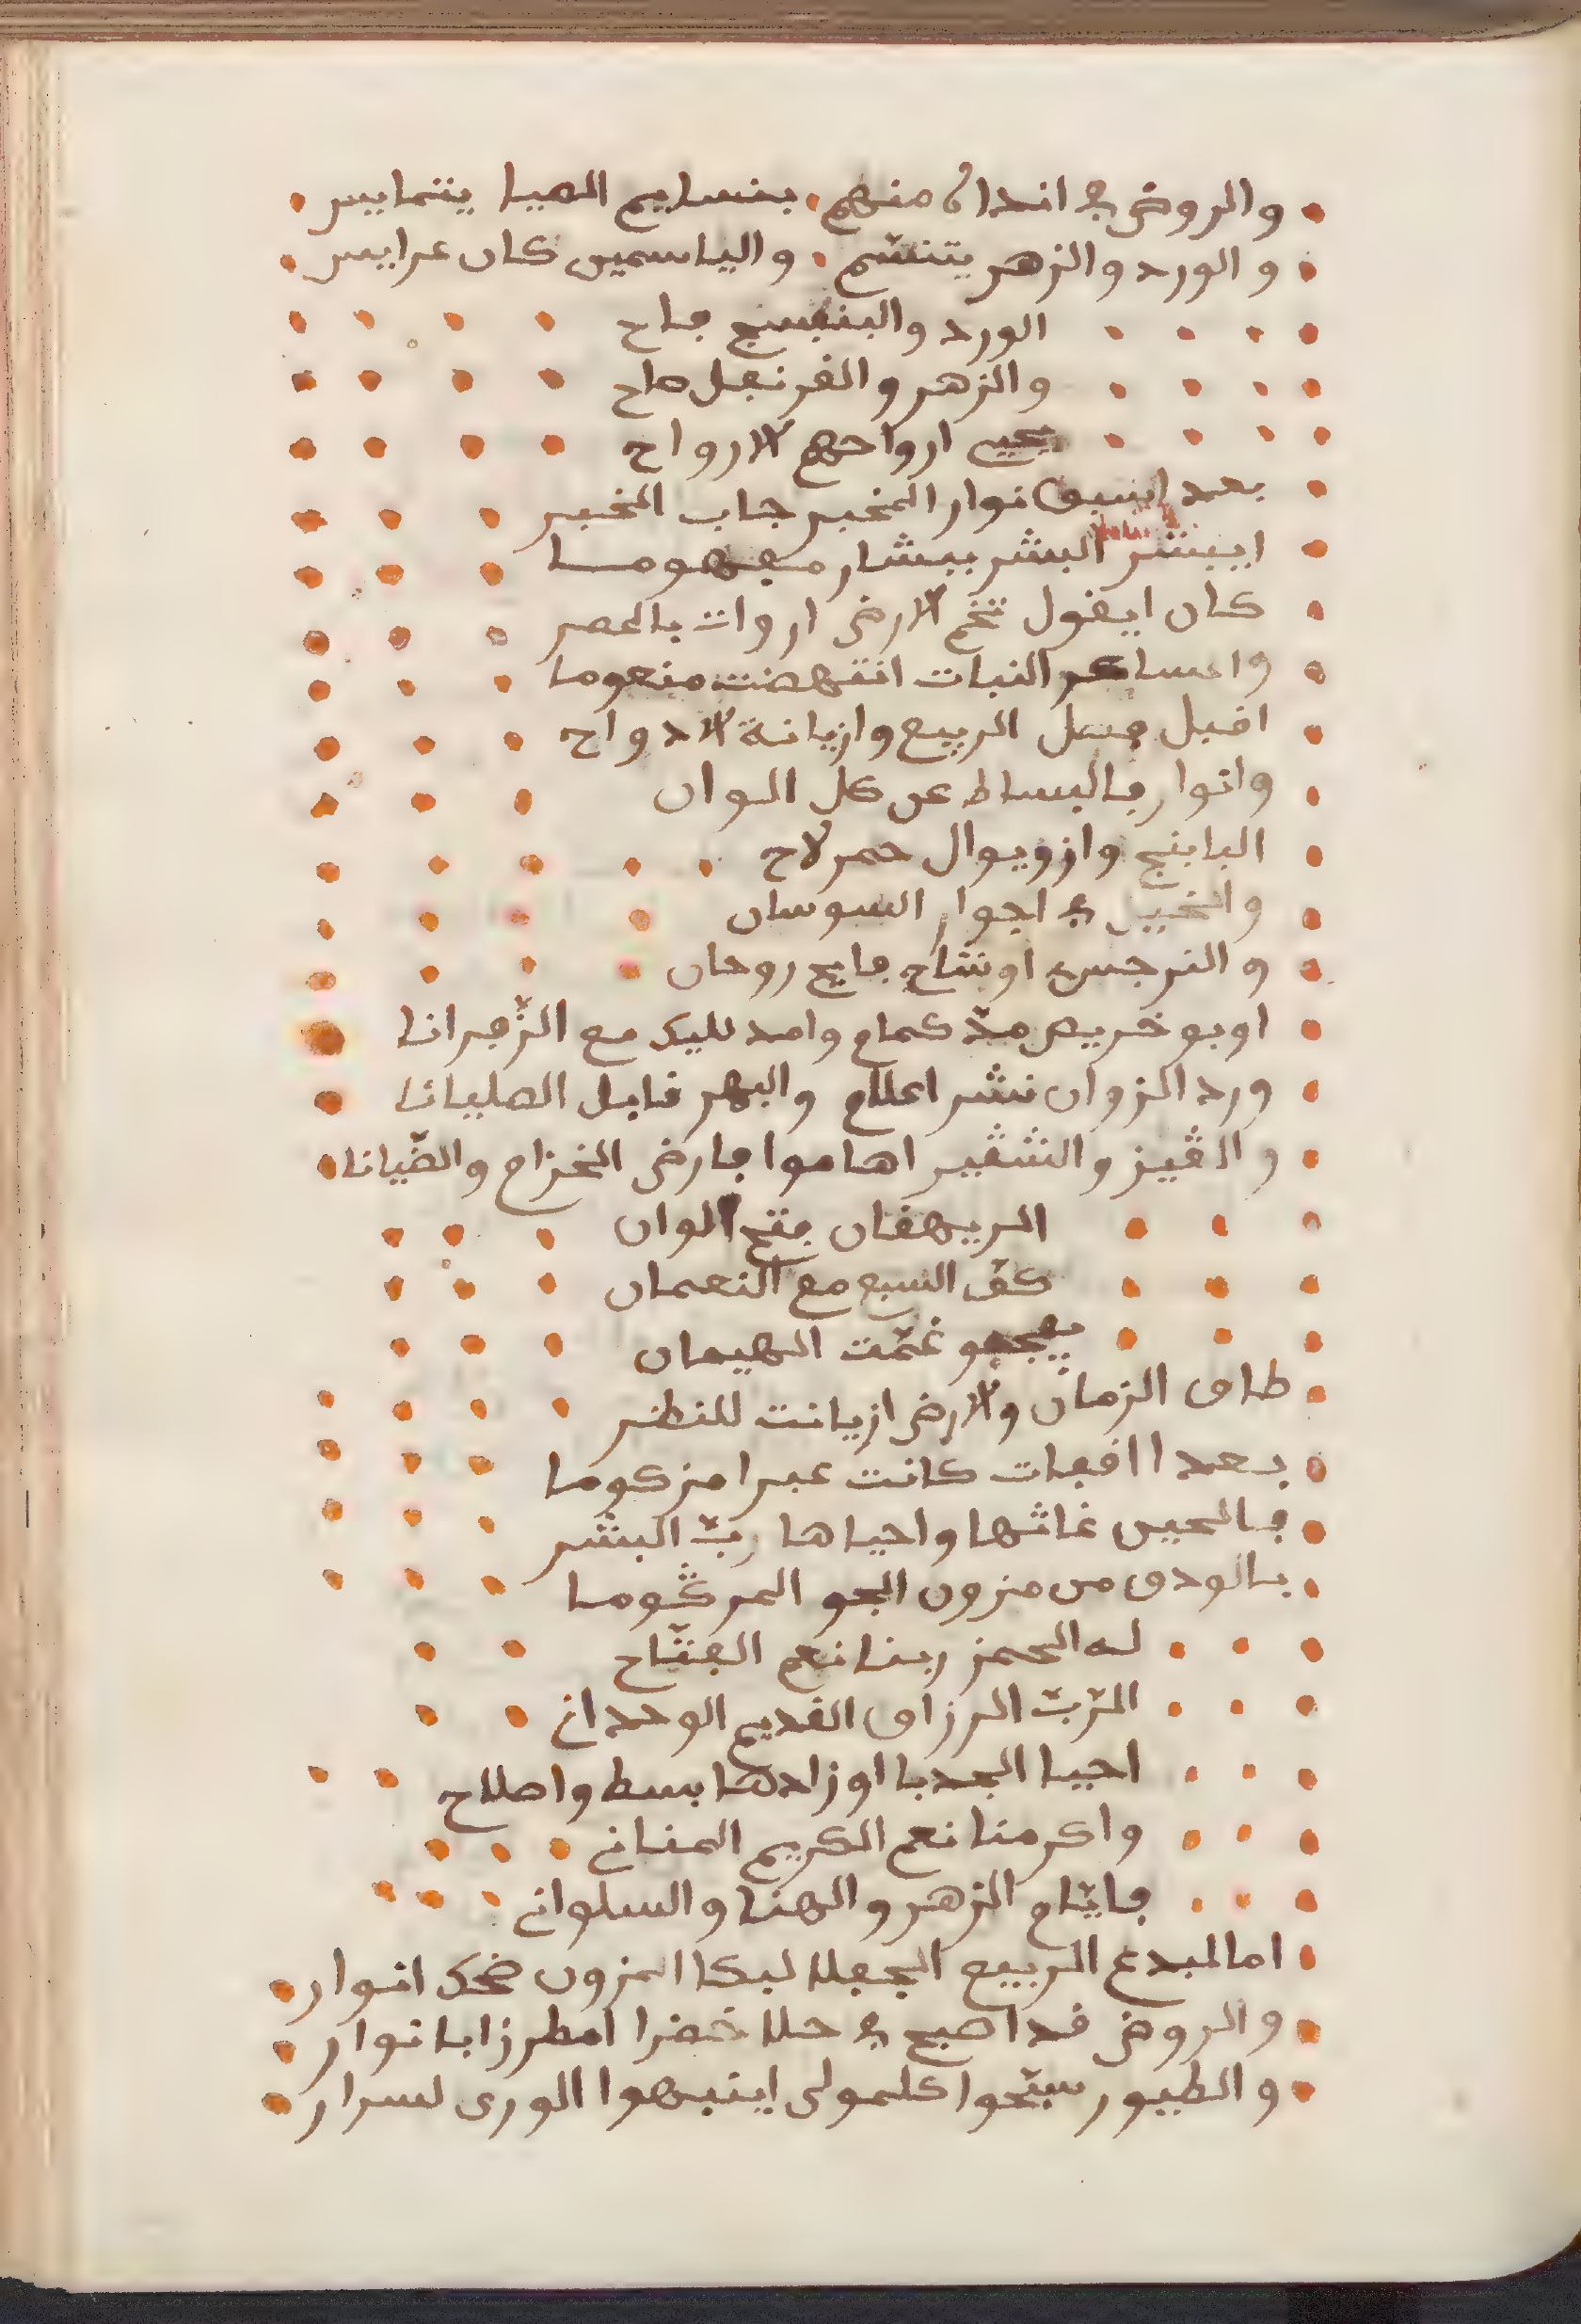 والروض في انداه منهم بنسايم الصبا يتمايس
والورد والزهر يتنسم والياسمين كان عرايس
الورد والبنفسج فاح
والزهر والقرنفل صاح
يحيي ارواحهم الارواح
بعد نوار المخبر جاب الخبر
ايبشر البشر ببشار مفهوما
كان ايقول تخم الارض اروات بالمصر
واعساكر النبات انتهضت منعوما
اقبل فصل الربيع وازيانة الادواح
وانوار فالبساط عن كل الوان
البابنج وازويوال حمر لاح
والخبيل في اجوار السوسان
والنرجس اوشاح فايح روحان
اوبو خريص مد كمام واصد لليك مع الزفرانا
ورد الزوان نشر اعلام والبهر قابل الصليانا
والڤيز والشڤير اهاموا فارض الخزام والضيانا
الريهقان فتح الوان
كف السبع مع النعمان
يفججو غمت الهيمان
طاق الزمان والارض ازيانت للنظر
بعد اافجات كانت عبرا مزكوما
فالحين غاثها واحياها رب البشر
بالودق من مزون الجو المركوما
له الحمز ربنا نعم الفتاح
الرب الرزاق القديم الوحداني
احيا الجدبا اوزادها بسط واصلاح
واكرمنا نعم الكريم المناني
فايام الزهر والهنا والسلواني
امالمبدع الربيع الجعلا لبكا المزون ضحك انوار
والروض قد اصبح في حلا خضرا امطرزا بانوار
والطيور سبحوا كلمولى اينبهوا الورى لسرار